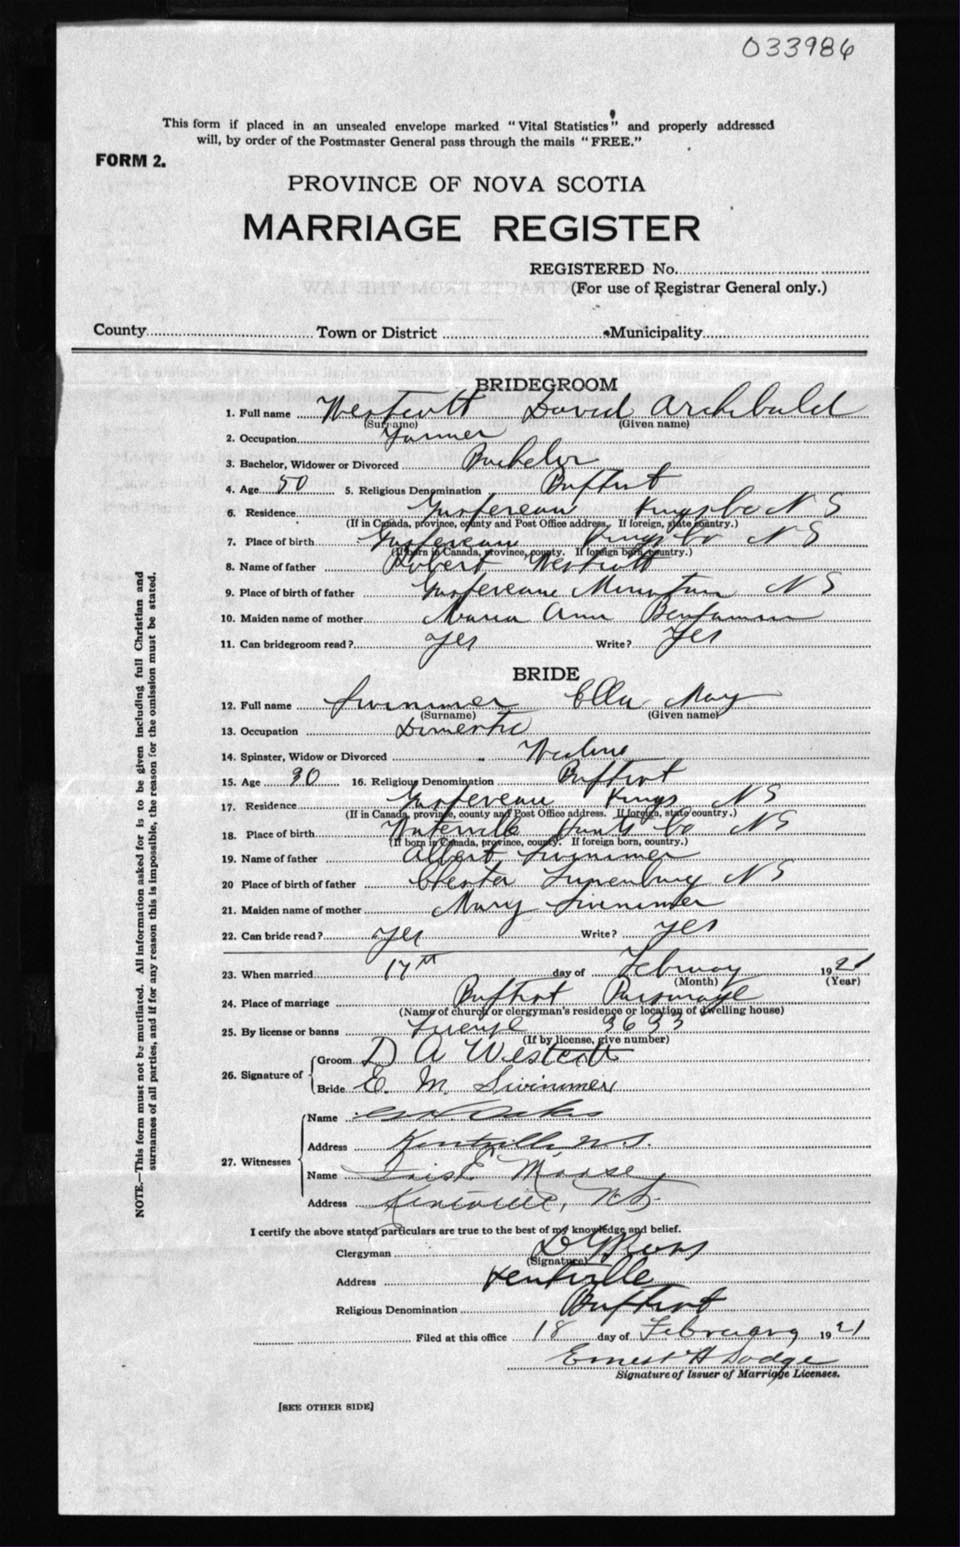 033986
This form if placed in an unsealed envelope marked "Vital Statistics" and properly addressed
will, by order of the Postmaster General pass through the mails "FREE."
FORM 2.
PROVINCE OF NOVA SCOTIA
MARRIAGE REGISTER
REGISTERED No.
(For use of Registrar General only.)
County Town or District Municipality
BRIDEGROOM
1. Full name Westcott David Archibald
(Surname) (Given name)
2. Occupation Farmer
3. Bachelor, Widower or Divorced Bachelor
4. Age 50 5. Religious Denomination Baptist
6. Residence Gaspereau Kings Co N S
(If in Canada, province, county and Post Office address. If foreign, state country.)
7. Place of birth Gaspereau Kings Co N S
(If born in Canada, province, county. If foreign born, country.)
8. Name of father Robert Westcott
9. Place of birth of father Gaspereau Mountain N S
10. Maiden name of mother Maria Ann Benjamin
11. Can bridegroom read? Yes Write? Yes
BRIDE
12. Full name Swinimer Ella May
(Surname) (Given name)
13. Occupation Domestic
14. Spinster, Widow or Divorced
15. Age 30 16. Religious Denomination Baptist
17. Residence Gaspereau Kings N S
(If in Canada, province, county and Post Office address. If foreign, state country.)
18. Place of birth Waterville Hants Co N S
(If born in Canada, province, county. If foreign born, country.)
19. Name of father Albert Swinimer
20 Place of birth of father Chester Lunenburg N S
21. Maiden name of mother Mary Swinimer
22. Can bride read? Yes Write? Yes
23. When married 17th day of February 1921
(Month) (Year)
24. Place of marriage Baptist Parsonage
(Name of church or clergyman's residence or location of dwelling house)
25. By license or banns 3633
(If by license, give number)
26. Signature of Groom D A Westcott
Bride E. M. Swinimer
27. Witnesses Name Oakes
Address Kentville N.S.
Name E Moase
Address Kentville, N.S.
I certify the above stated particulars are true to the best of my knowledge and belief.
Clergyman
(Signature)
Address Kentville
Religious Denomination Baptist
Filed at this office 18 day of February 1921
Ernest H Dodge
Signature of Issuer of Marriage Licenses.
[SEE OTHER SIDE]
NOTE.—This form must not be mutilated. All information asked for is to be given including full Christian and
surnames of all parties, and if for any reason this is impossible, the reason for the omission must be stated.